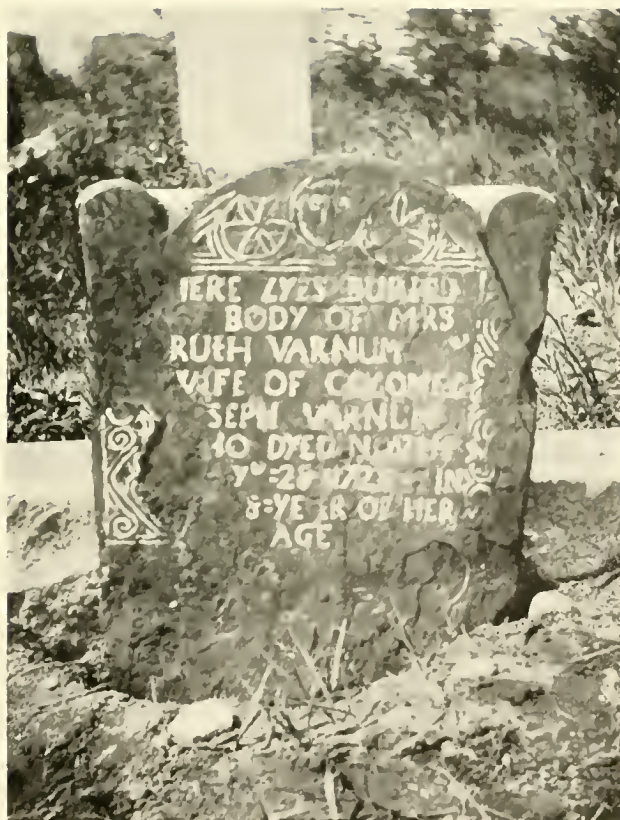 HERE LYES BURIED
BODY OF MRS
RUTH VARNUM
WIFE OF COLONEL
SEPH VARNUM
HO DYED
28
IN
8=YEAR OF HER
AGE